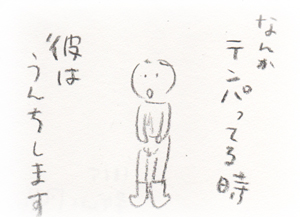 なんか
テンパってる時
彼は
うんちします